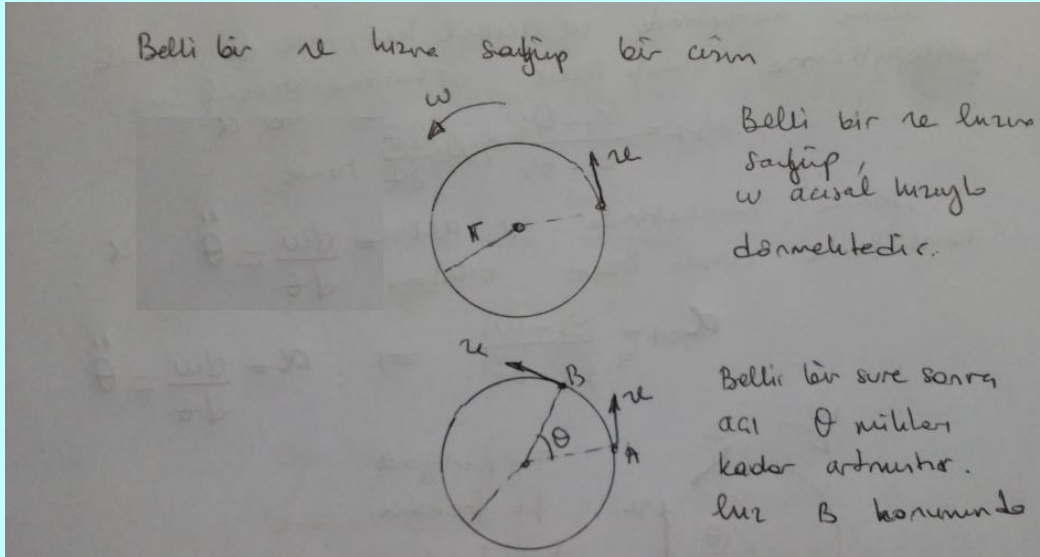 Belli bir v hızına sahip bir cisim
ω
v
r
Belli bir v hızına
sahip,
w açısal hızıyla
dönmektedir.
v
B
v
θ
A
Belli bir sure sonra
açı θ miktarı
kadar artmıştır.
hız B konumunda